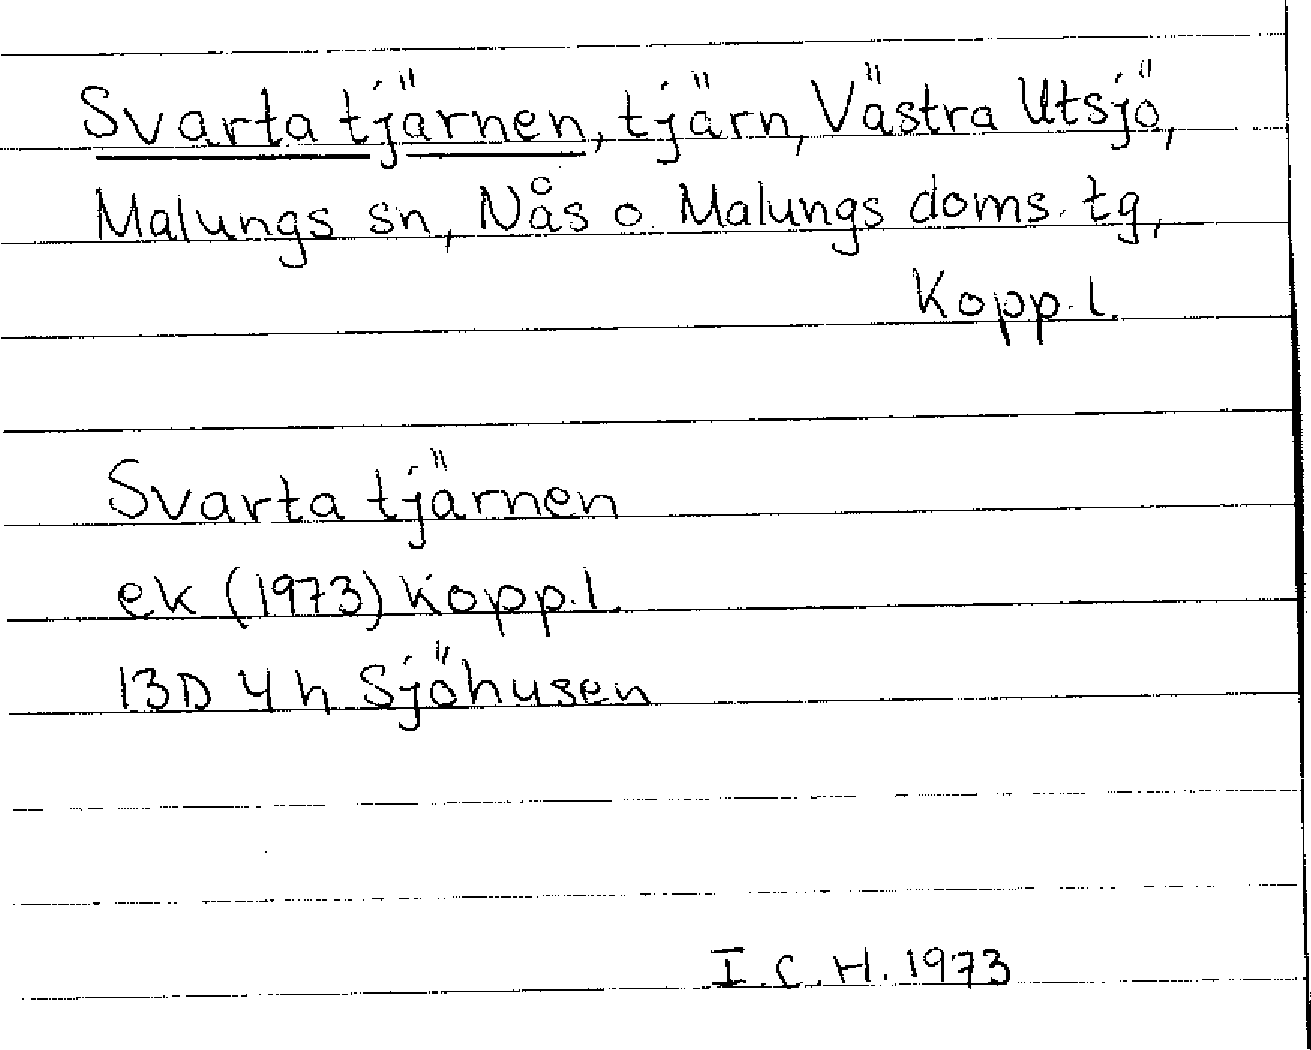 Svarta tjärnen, tjärn, Västra Utsjö,
Malungs sn, Nås o. Malungs doms. tg,
Kopp. l.
Svarta tjärnen
ek (1973) Kopp. l.
13D 4 h Sjöhusen
I.C.H. 1973